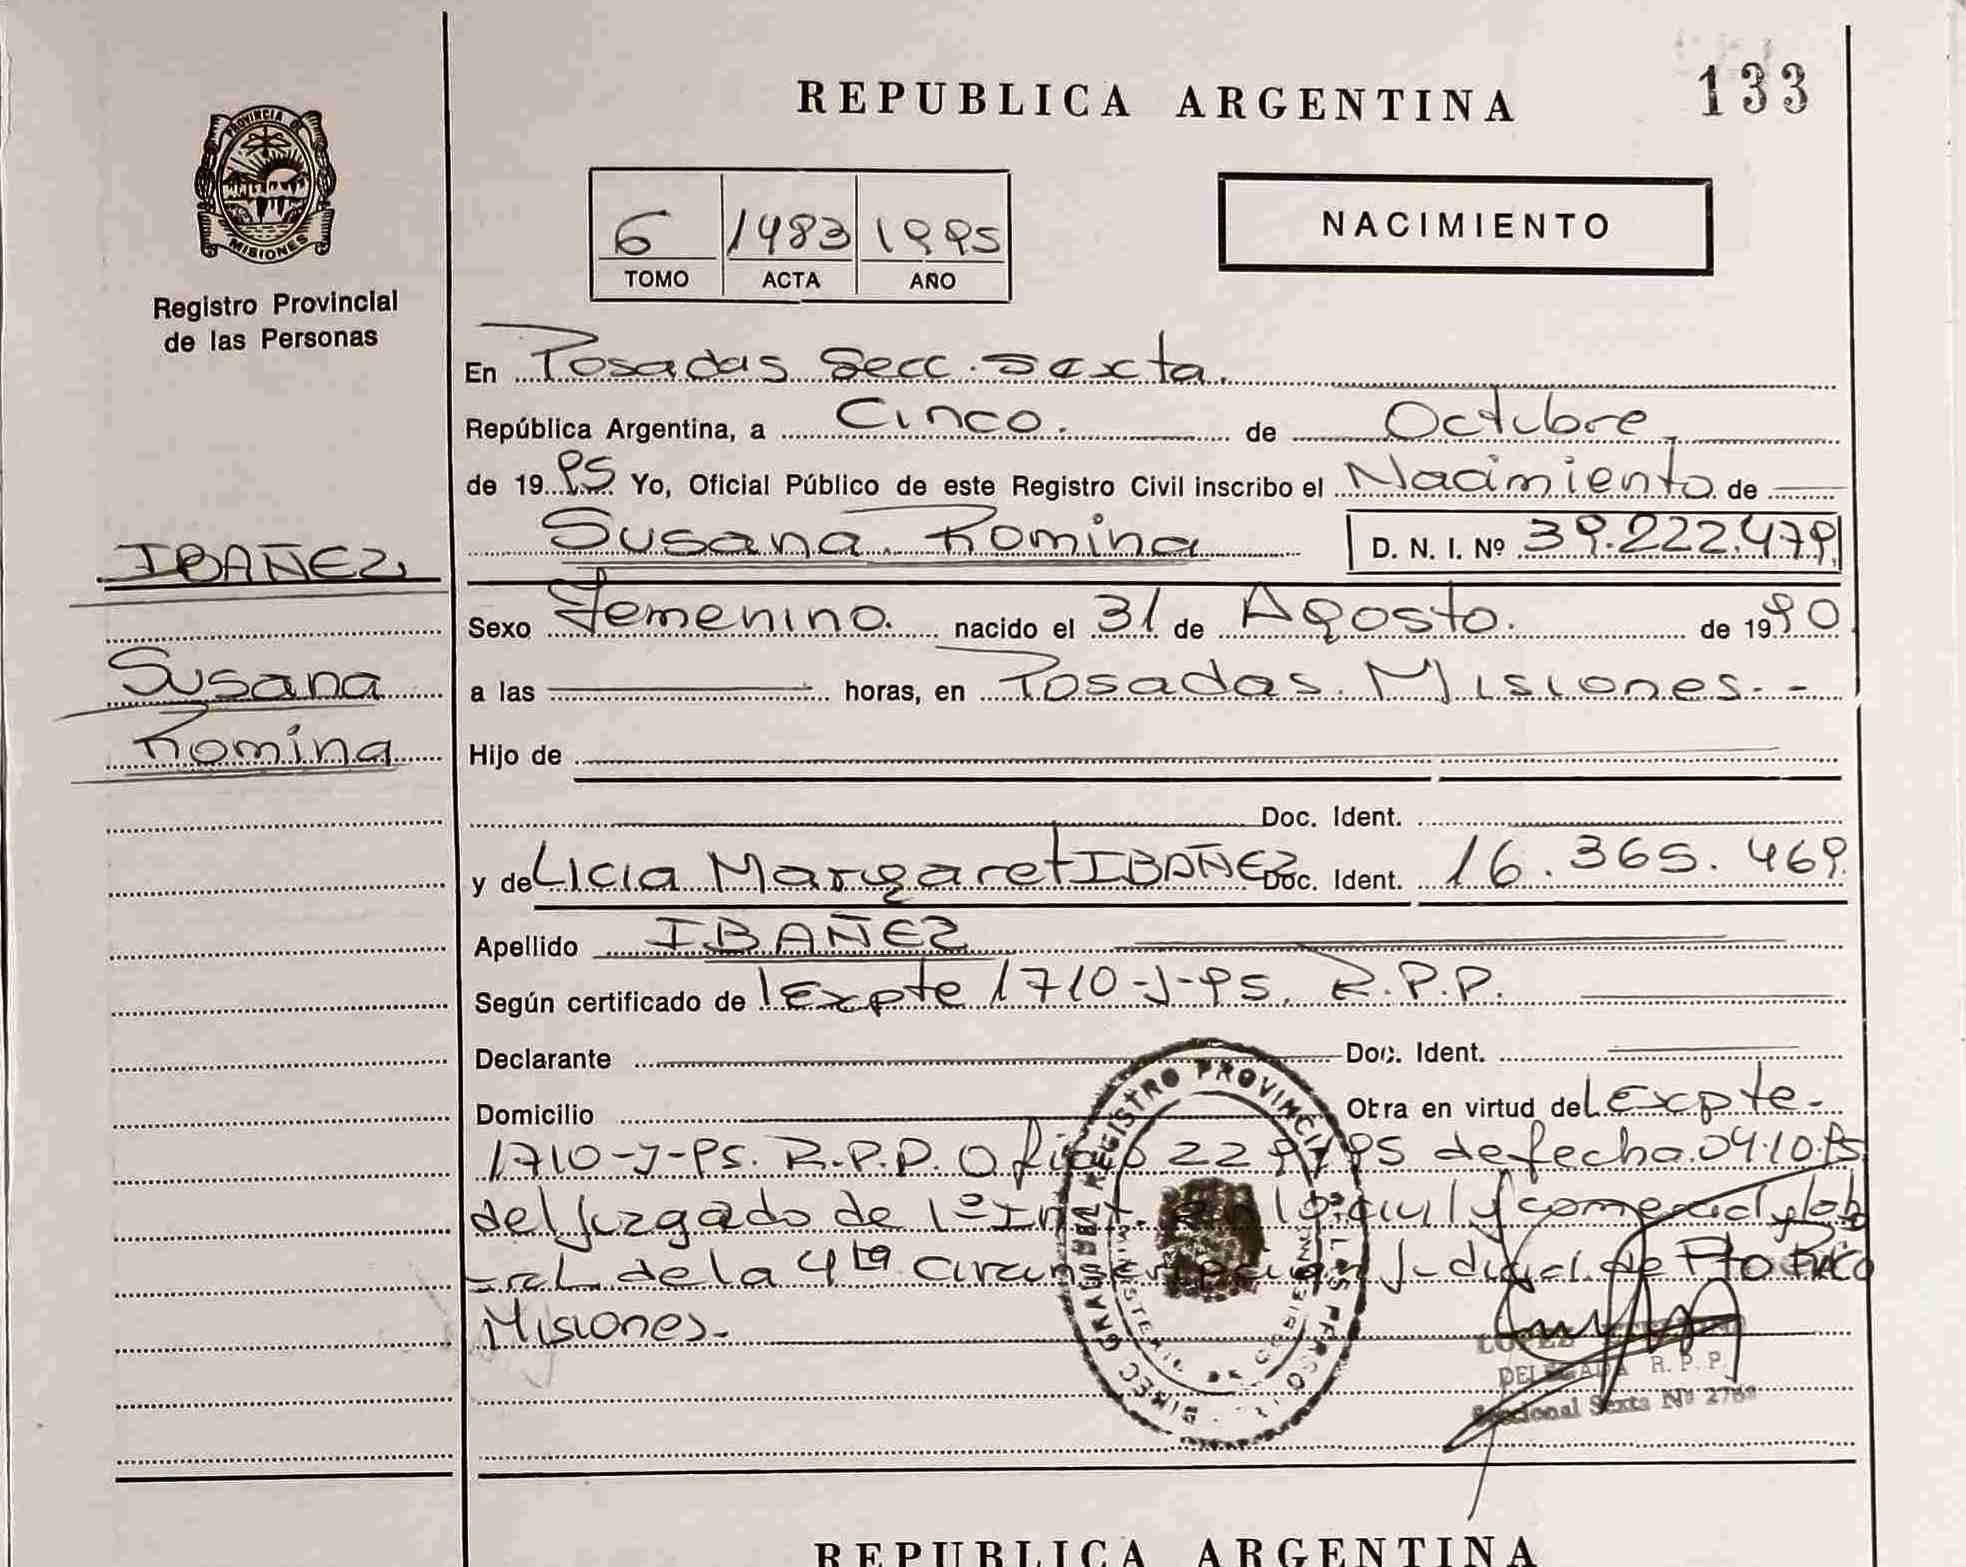 REPUBLICA ARGENTINA
133
PROVINCIA DE
MISIONES
Registro Provincial
de las Personas
6 1483 1995
TOMO ACTA AÑO
NACIMIENTO
En Posadas Secc. Sexta.
República Argentina, a Cinco. de Octubre
de 19 95 Yo, Oficial Público de este Registro Civil inscribo el Nacimiento de
Susana Romina D. N. I. Nº 39.222.479
IBAÑEZ
Susana
Romina
Sexo Femenino. nacido el 31 de Agosto. de 19 90
a las horas, en Posadas. Misiones.-
Hijo de
Doc. Ident.
y de Licia Margaret IBAÑEZ Doc. Ident. 16.365.469
Apellido IBAÑEZ
Según certificado de Expte 1710-J-95. R.P.P.
Declarante Doc. Ident.
Domicilio Otra en virtud del Expte-
1710-J-95. R.P.P. Oficio 229/95 de fecha 04.10.95
del Juzgado de 1º Inst. en lo civil y comercial y lab
-ral de la 4ta Circunscripción Judicial de Pto Rico
Misiones.-
REGISTRO PROVINCIAL DE LAS PERSO
DIREC GRAL DEL
MINISTERIO DE GOBIERNO
LOPEZ
DELEGADA R. P. P.
Seccional Sexta Nº
REPUBLICA ARGENTINA